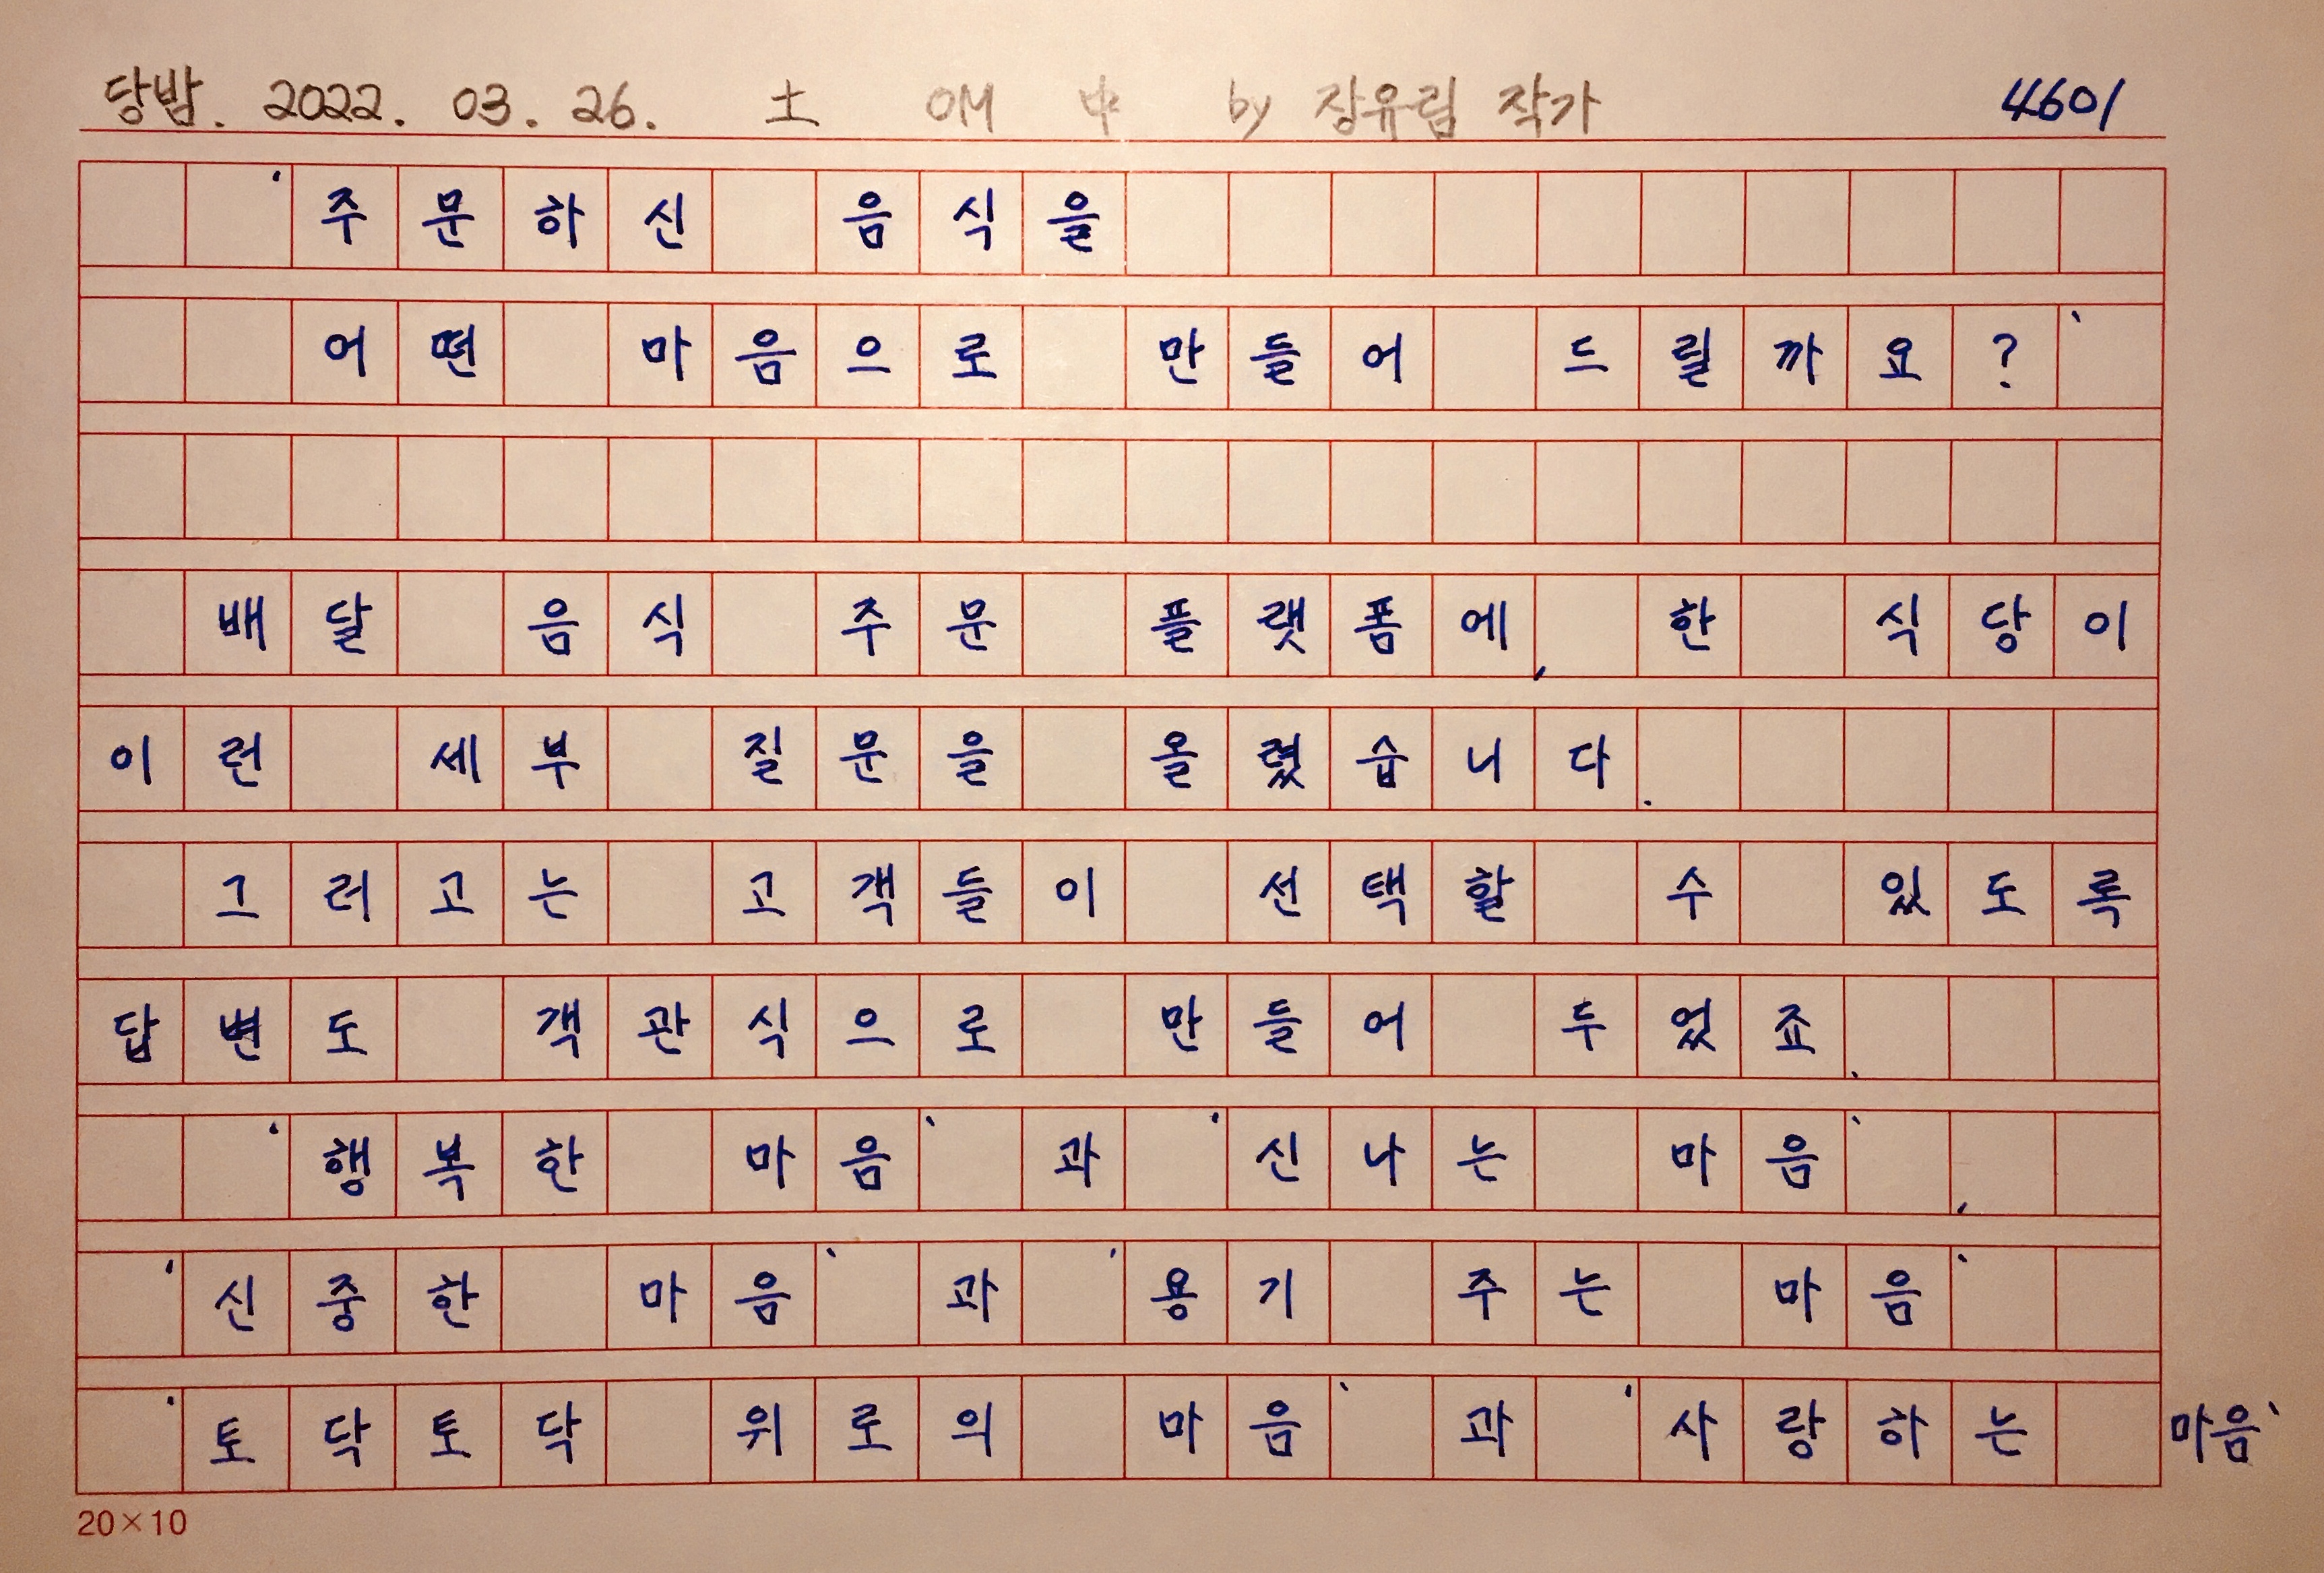 당밤. 2022. 03. 26. 土 OM 中 by 장유림 작가 4601
'주문하신 음식을
어떤 마음으로 만들어 드릴까요?'
배달 음식 주문 플랫폼에, 한 식당이
이런 세부 질문을 올렸습니다.
그러고는 고객들이 선택할 수 있도록
답변도 객관식으로 만들어 두었죠.
'행복한 마음'과 '신나는 마음',
'신중한 마음'과 '용기 주는 마음'
'토닥토닥 위로의 마음'과 '사랑하는 마음'
20×10